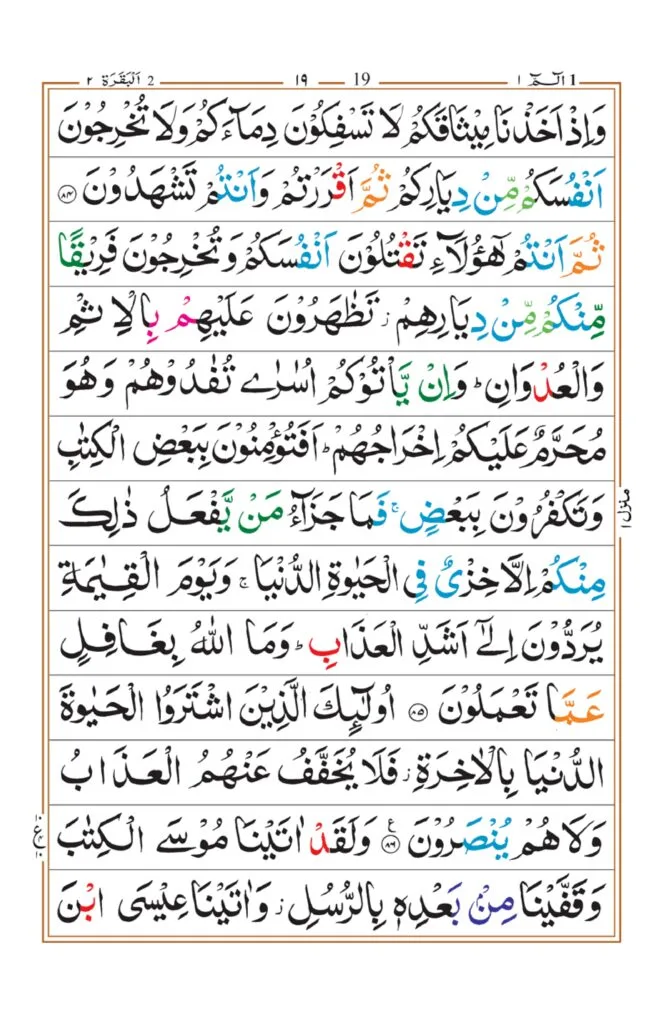 الٓمّٓ ١ 1 19 ١٩ 2 اَلْبَقَرَة ٢
وَاِذْ اَخَذْنَا مِيْثَاقَكُمْ لَا تَسْفِكُوْنَ دِمَآءَكُمْ وَلَا تُخْرِجُوْنَ
اَنْفُسَكُمْ مِّنْ دِيَارِكُمْ ثُمَّ اَقْرَرْتُمْ وَاَنْتُمْ تَشْهَدُوْنَ ۝٨٤
ثُمَّ اَنْتُمْ هٰٓؤُلَآءِ تَقْتُلُوْنَ اَنْفُسَكُمْ وَتُخْرِجُوْنَ فَرِيْقًا
مِّنْكُمْ مِّنْ دِيَارِهِمْ ز تَظٰهَرُوْنَ عَلَيْهِمْ بِالْاِثْمِ
وَالْعُدْوَانِ ط وَاِنْ يَّاْتُوْكُمْ اُسٰرٰى تُفٰدُوْهُمْ وَهُوَ
مُحَرَّمٌ عَلَيْكُمْ اِخْرَاجُهُمْ ط اَفَتُؤْمِنُوْنَ بِبَعْضِ الْكِتٰبِ
وَتَكْفُرُوْنَ بِبَعْضٍ ج فَمَا جَزَآءُ مَنْ يَّفْعَلُ ذٰلِكَ
مِنْكُمْ اِلَّا خِزْىٌ فِى الْحَيٰوةِ الدُّنْيَا ج وَيَوْمَ الْقِيٰمَةِ
يُرَدُّوْنَ اِلٰٓى اَشَدِّ الْعَذَابِ ط وَمَا اللّٰهُ بِغَافِلٍ
عَمَّا تَعْمَلُوْنَ ۝٨٥ اُولٰٓئِكَ الَّذِيْنَ اشْتَرَوُا الْحَيٰوةَ
الدُّنْيَا بِالْاٰخِرَةِ ز فَلَا يُخَفَّفُ عَنْهُمُ الْعَذَابُ
وَلَا هُمْ يُنْصَرُوْنَ ۝٨٦ ع وَلَقَدْ اٰتَيْنَا مُوْسَى الْكِتٰبَ
وَقَفَّيْنَا مِنْ بَعْدِهٖ بِالرُّسُلِ ز وَاٰتَيْنَا عِيْسَى ابْنَ
منزل ١